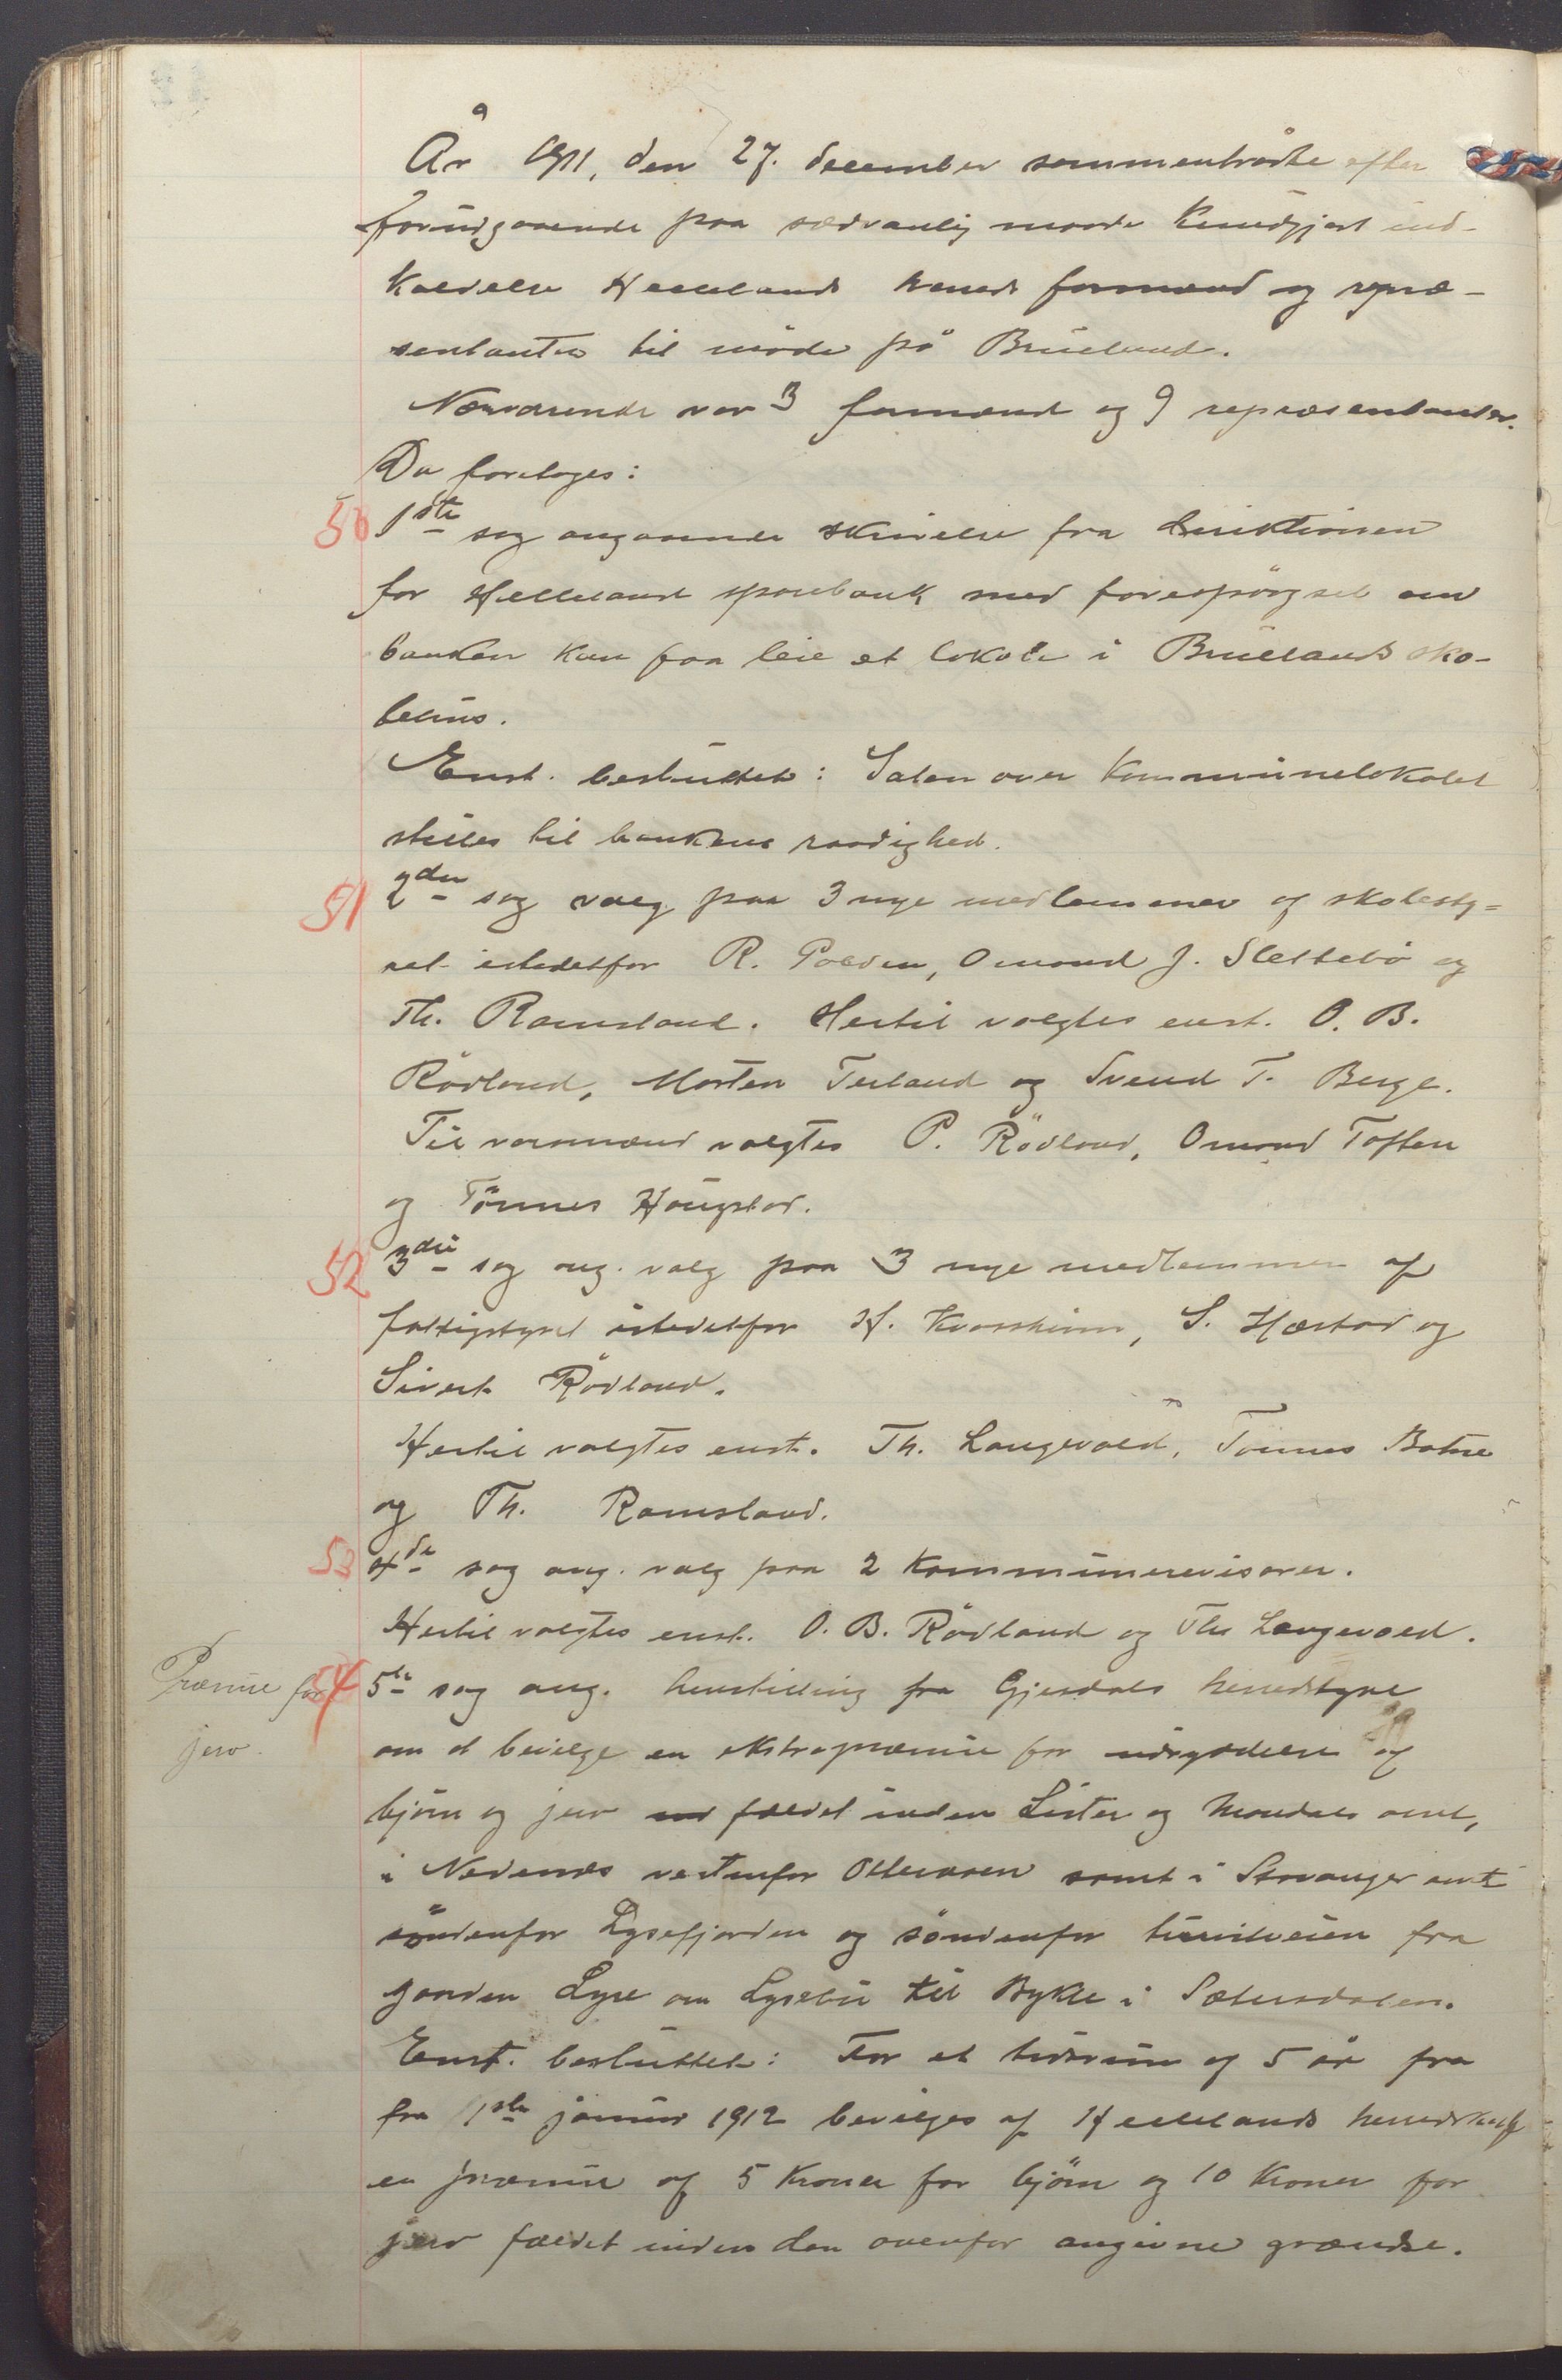 År 1911, den 27. december sammentrådte efter
forudgaaende paa sædvanlig maade kundgjort ind-
kaldelse Hellelands herreds formænd og repræ-
sentanter til møde på Brueland.
Nærværende var 3 formænd og 9 repræsentanter.
Da foretoges:
50 1ste sag angaaende skrivelse fra direktionen
for Helleland sparebank med forespørgsel om
banken kan faa leie et lokale i Bruelands sko-
lehus.
Enst. besluttet: Salen over kommunelokalet
stilles til bankens raadighed.
51 2den sag valg paa 3 nye medlemmer af skolesty=
ret istedetfor R. Polden, Omund J. Slettebö og
Th. Ramsland. Hertil valgtes enst. O. B.
Rödland, Morten Terland og Svend T. Berge.
Til varamænd valgtes P. Rödland, Omund Toften
og Tönnes Haugstad.
52 3die sag ang. valg paa 3 nye medlemmer af
fattigstyret istedetfor H. Kvassheim, S. Hæstad og
Sivert Rödland.
Hertil valgtes enst. Th. Langevald, Tönnes Botne
og Th. Ramsland.
53 4de sag ang. valg paa 2 kommunerevisorer.
Hertil valgtes enst. O. B. Rödland og Ths Langevald.
Præmie for 54 5te sag ang. henstilling fra Gjesdals herredstyre
jerv. om at bevilge en ekstrapræmie for udryddelse af
björn og jerv fældet inden Lister og Mandals amt,
i Nedenes vestenfor Otteraaen samt i Stavanger amt
söndenfor Lysefjorden og söndenfor turistveien fra
gaarden Lyse om Lysebu til Bykle i Sætersdalen.
Enst. besluttet: For et tidsrum af 5 år fra
fra 1ste januar 1912 bevilges af Hellelands herredskasse
en præmie af 5 kroner for björn og 10 kroner for
jerv fældet inden den ovenfor angivne grændse.